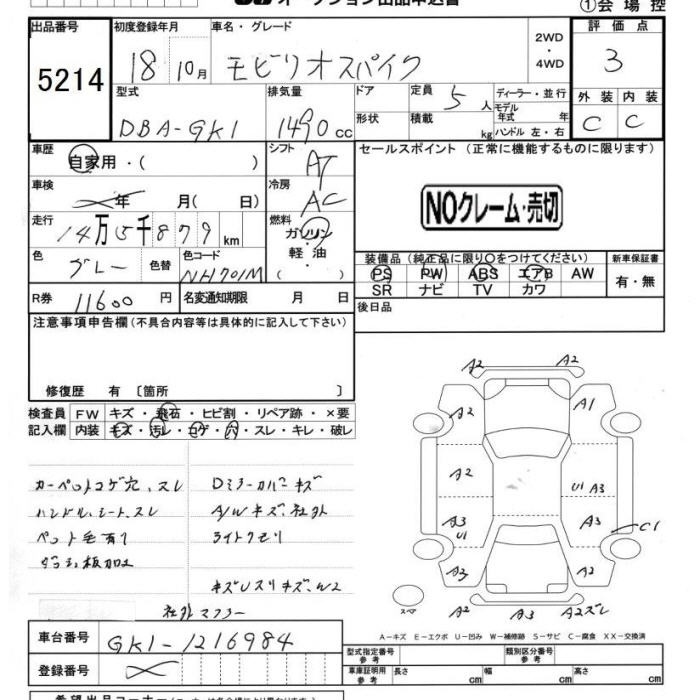 オークション出品申込書
①会場控
出品番号
5214
初度登録年月
18 10月
車名・グレード
モビリオスパイク
2WD
・
4WD
評価点
3
外装 内装
C C
型式
DBA-GK1
排気量
1490cc
ドア
形状
定員 5人
積載 kg
ディーラー・並行
モデル
年式 年
ハンドル 左・右
車歴
自家用・( )
シフト
AT
セールスポイント (正常に機能するものに限ります)
NOクレーム・売切
車検
年 月( 日)
冷房
AC
走行
14万5千879km
燃料
ガソリン
軽・油
( )
色
グレー
色替
色コード
NH701M
装備品 (純正品に限り○をつけてください)
PS PW ABS エアB AW
SR ナビ TV カワ
新車保証書
有・無
R券 11600円
名変通知期限 月 日
後日品
注意事項申告欄 (不具合内容等は具体的に記入して下さい)
修復歴 有 〔箇所 〕
検査員
記入欄
FW キズ・飛石・ヒビ割・リペア跡・×要
内装 キズ・汚レ・コゲ・穴・スレ・キレ・破レ
カーペットコゲ穴、スレ
ハンドル、シート、スレ
ペット毛有り
ダッシュ板加工
Dミラーカバーキズ
A/Wキズ、社外
ライトクモリ
キズUスリキズ、W2
社外マフラー
A2 A2
A2 A1
A2 U1 A3
A3 U1 A3 C1
A2 A2
スペア
A2 A3 A2ズレ
A-キズ E-エクボ U-凹み W-補修跡 S-サビ C-腐食 XX-交換済
車台番号 GK1-1216984
登録番号
型式指定番号
参考
類別区分番号
参考
車庫証明用
参考
長さ cm 幅 cm 高さ cm
希望出品コーナー